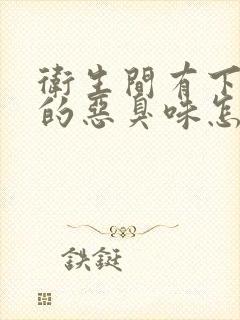 衛生間有下
的惡臭味怎
鉄鋌